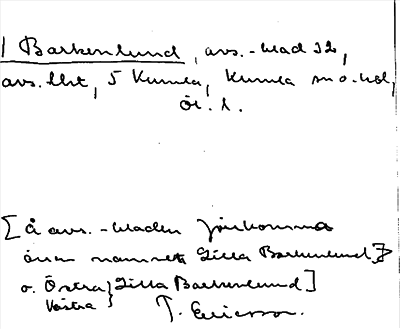 1 Barkenlund, avs.-blad 32,
avs. lht, 5 Kumla, Kumla sn o. hd,
Ör. l.
[Å avs.-bladen förekomma
även namnet Lilla Barkenlund]
o. Östra } Lilla Barkenlund]
Västra
T. Ericsson.